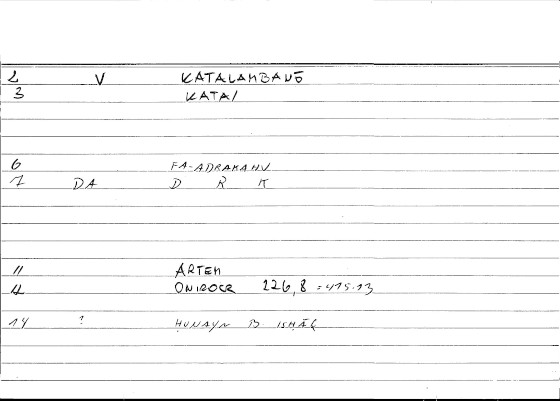 2 V KATALAMBANŌ
3 KATAI
6 FA-ADRAKAHU
7 DA D R K
11 ARTEM
12 ONIROCR 226,8 = 415.13
14 ? HUNAYN B ISHĀQ